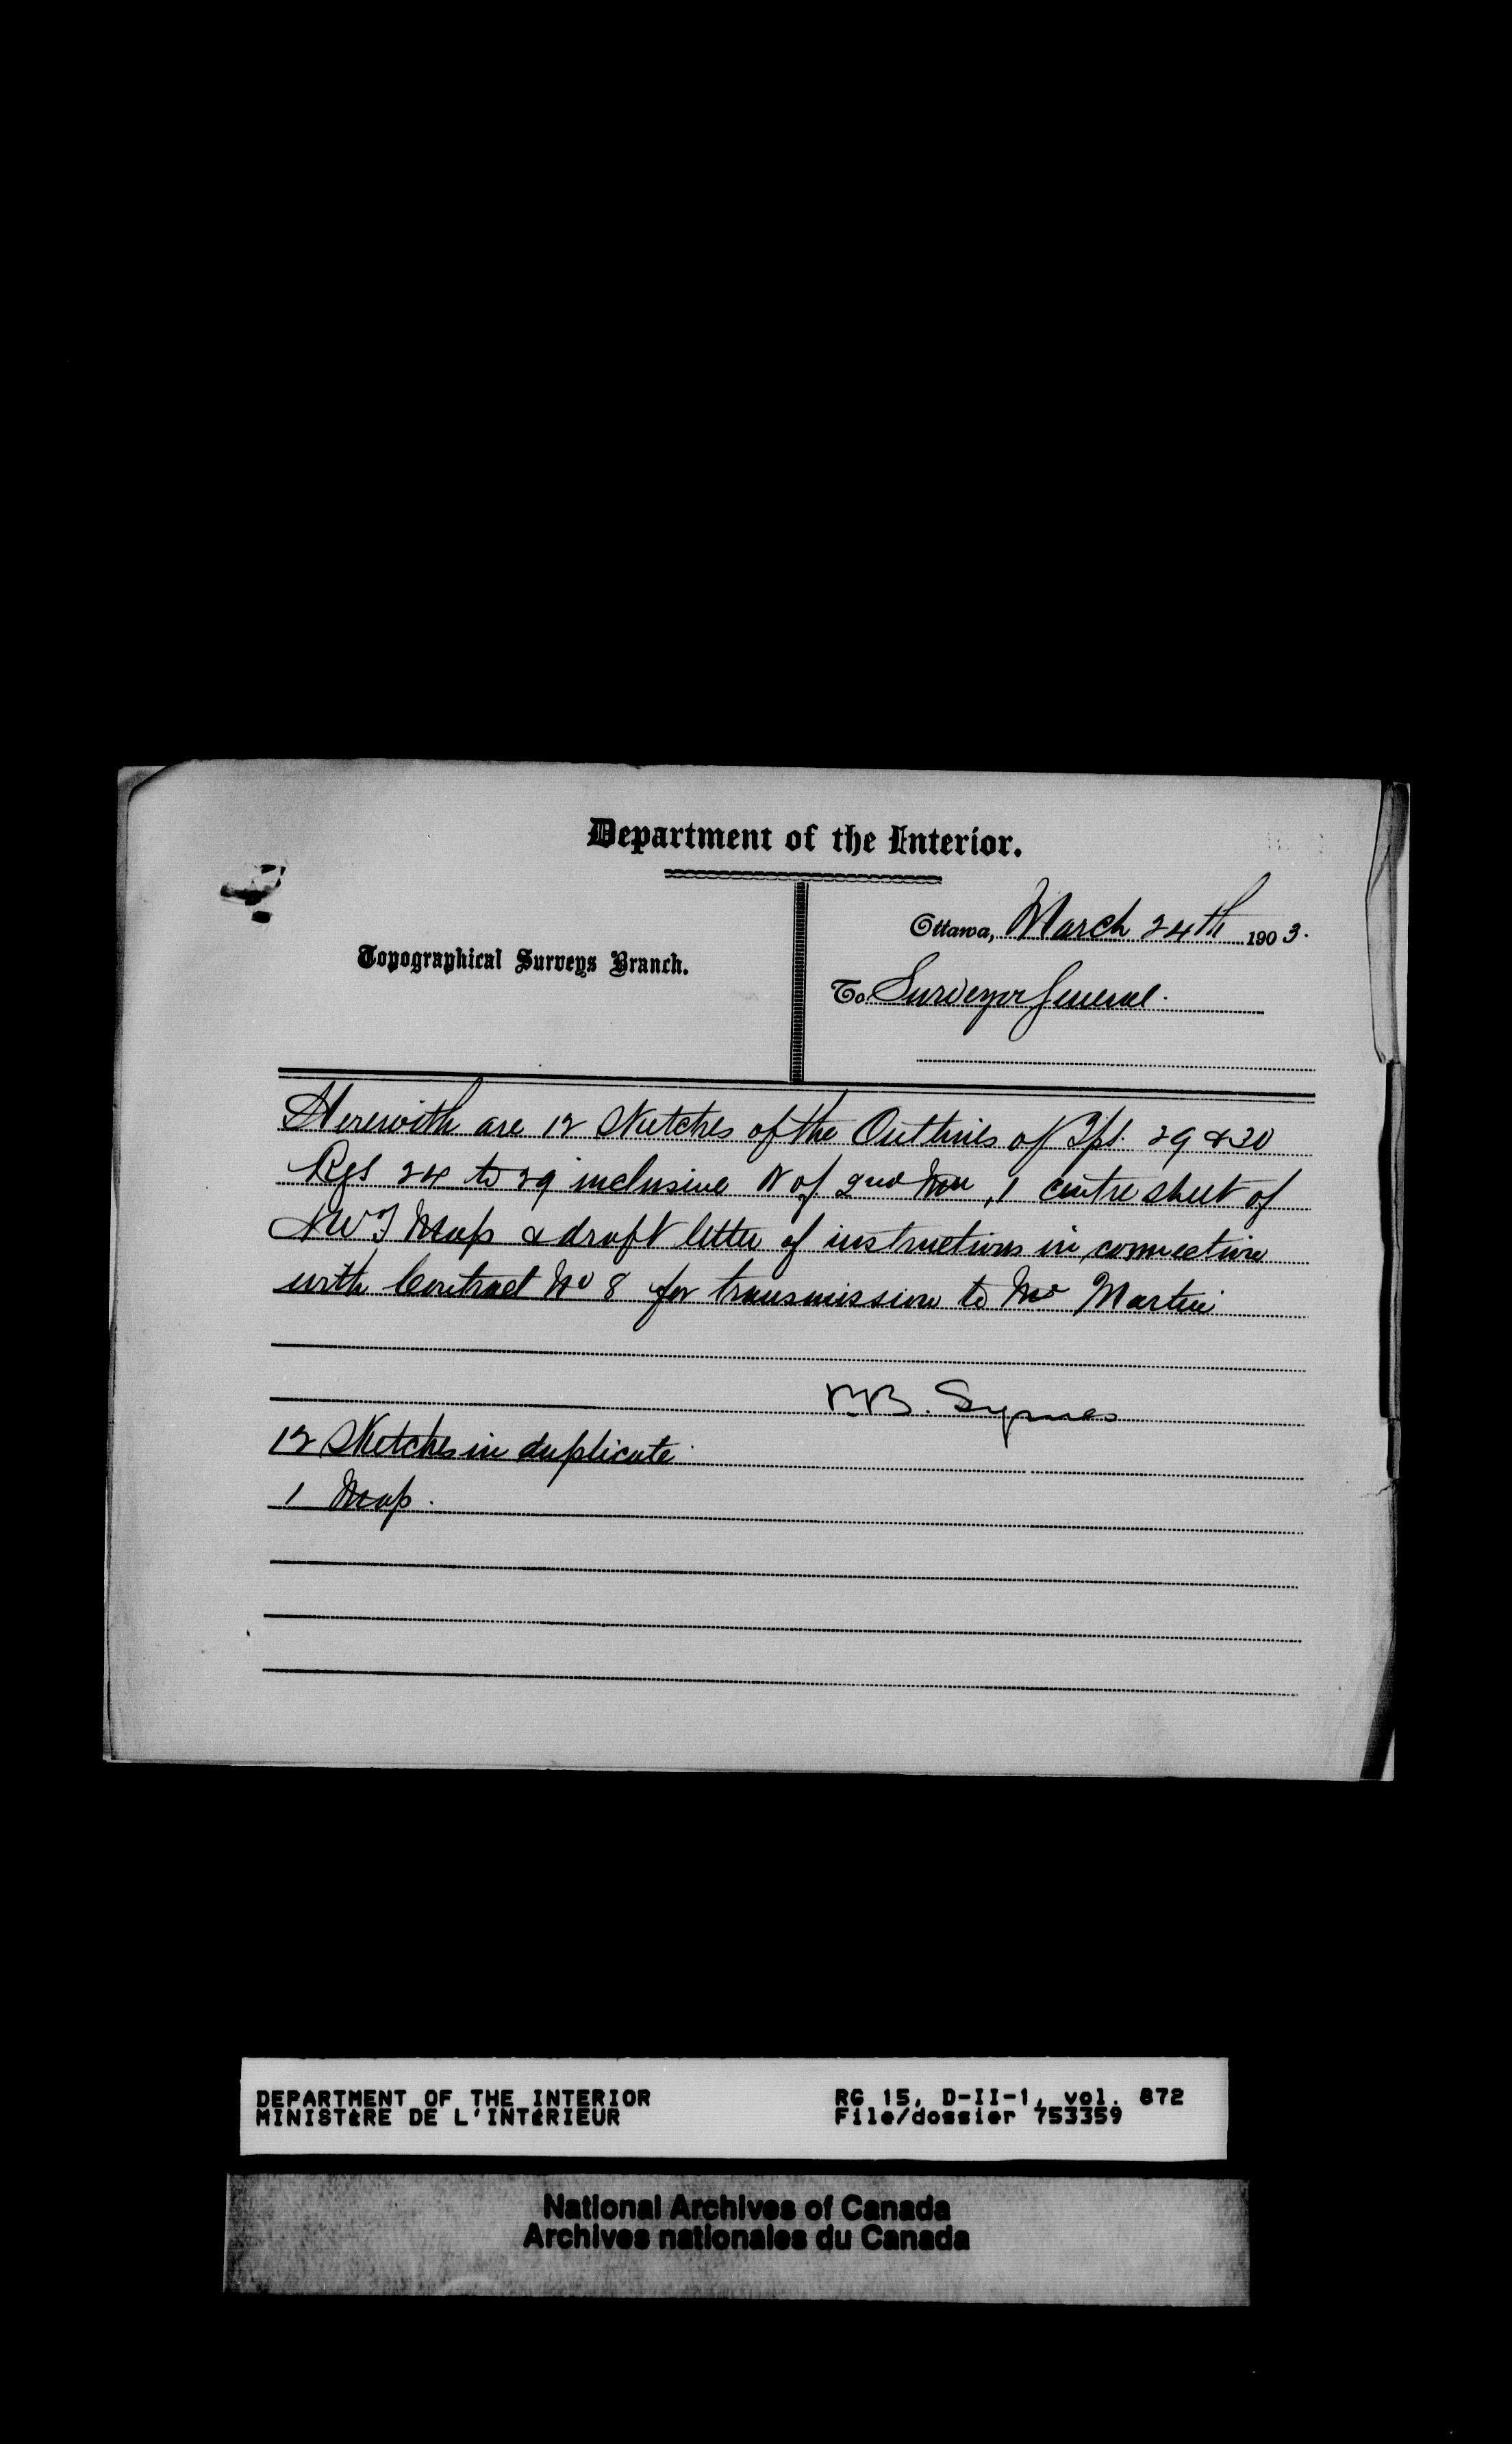 Department of the Interior.
Topographical Surveys Branch.
Ottawa, March 24th 1903.
To Surveyor General.
Herewith are 12 Sketches of the Outlines of Tps. 29 & 30
Rgs 24 to 29 inclusive W of 2nd Mer, 1 centre sheet of
NWT Map & draft letter of instructions in connection
with Contract No 8 for transmission to Mr Martin
B. Symes
12 Sketches in duplicate.
1 Map.
DEPARTMENT OF THE INTERIOR
MINISTÈRE DE L'INTÉRIEUR
RG 15, D-II-1, vol. 872
File/dossier 753359
National Archives of Canada
Archives nationales du Canada